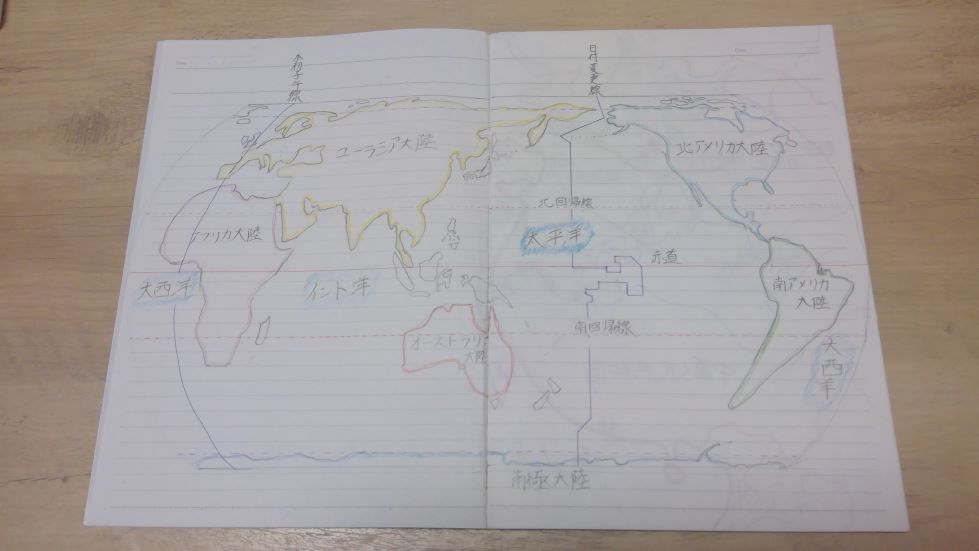 本初子午線
日付変更線
ユーラシア大陸
北アメリカ大陸
北回帰線
アフリカ大陸
太平洋
赤道
大西洋
インド洋
南アメリカ
大陸
南回帰線
オーストラリア
大陸
大西洋
南極大陸